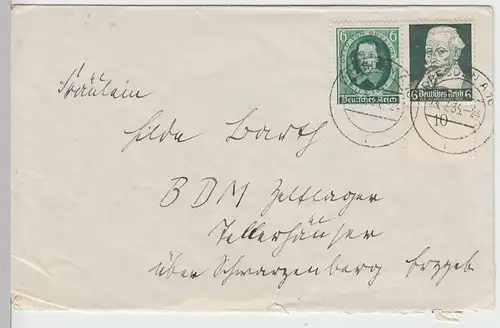 6
6
Deutsches Reich
Deutsches Reich 6
DRESDEN A
10
Fräulein
Hilde Barth
BDM Zeltlager
Tellerhäuser
über Schwarzenberg Erzgeb